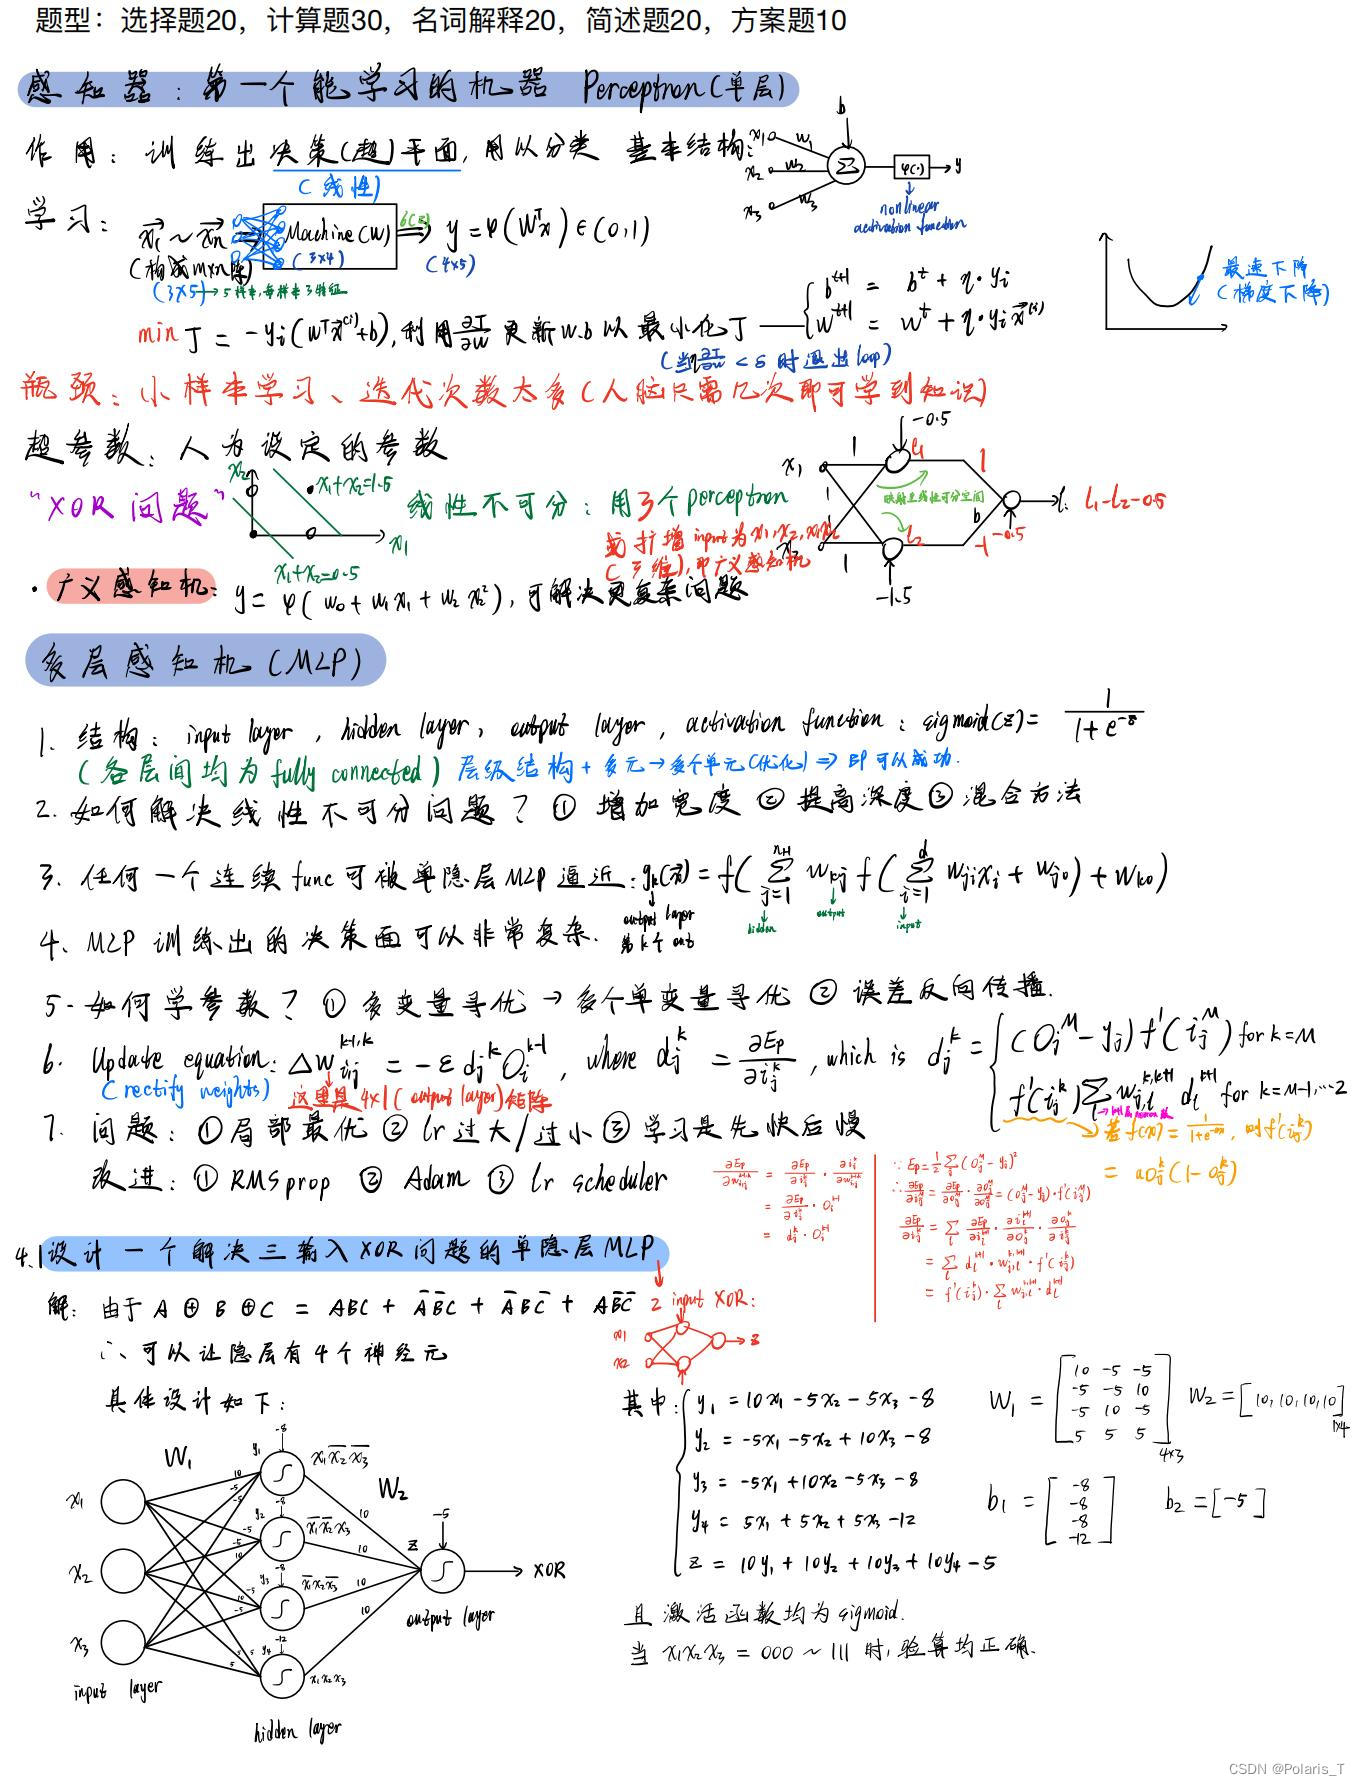 题型：选择题20，计算题30，名词解释20，简述题20，方案题10
感知器：第一个能学习的机器 Perceptron(单层)
作用：训练出决策(超)平面，用以分类 基本结构：
(线性)
x₁ w₁ b
x₂ w₂ Σ φ(·) y
x₃ w₃
nonlinear
activation function
学习：x₁ ~ xₙ ⇒ Machine(W) ⇒ y = φ(Wᵀx) ∈ (0,1)
(构成m×n阵) (3×4) (4×5)
(3×5) → 5样本，每样本3特征
min J = -yᵢ(Wᵀx⁽ⁱ⁾+b)，利用∂J/∂W 更新w.b以最小化J
bᵗ⁺¹ = bᵗ + η·yᵢ
wᵗ⁺¹ = wᵗ + η·yᵢx⁽ⁱ⁾
(当η∂J/∂w < δ 时退出loop)
最速下降
(梯度下降)
瓶颈：小样本学习、迭代次数太多(人脑只需几次即可学到知识)
超参数：人为设定的参数
"XOR问题" x₂ x₁+x₂=1.5 x₁ x₁+x₂=0.5
线性不可分：用3个perceptron
或扩增input为x₁,x₂,x₁x₂
(三维)，即广义感知机
x₁ 1 -0.5 l₁ 1
映射至线性可分空间
l₁-l₂-0.5
x₂ 1 l₂ -1 -0.5
-1.5
·广义感知机：y = φ(w₀ + w₁x₁ + w₂x₂²)，可解决更复杂问题
多层感知机(MLP)
1. 结构：input layer，hidden layer，output layer，activation function：sigmoid(z) = 1/(1+e⁻ᶻ)
(各层间均为fully connected) 层级结构+多元→多个单元(优化) ⇒ BP可以成功.
2. 如何解决线性不可分问题？① 增加宽度 ② 提高深度 ③ 混合方法
3. 任何一个连续func可被单隐层MLP逼近：gₖ(x) = f(Σ wₖⱼ f(Σ wⱼᵢxᵢ + wⱼ₀) + wₖ₀)
output layer 第k个out hidden output input
4、MLP训练出的决策面可以非常复杂.
5. 如何学参数？① 多变量寻优→多个单变量寻优 ② 误差反向传播.
6. Update equation：Δwᵢⱼᵏ⁻¹·ᵏ = -ε dⱼᵏ Oᵢᵏ⁻¹，where dⱼᵏ = ∂Eₚ/∂iⱼᵏ，which is dⱼᵏ =
(Oⱼᴹ - yⱼ) f'(iⱼᴹ) for k=M
f'(iⱼᵏ) Σ wⱼ,ₗᵏ·ᵏ⁺¹ dₗᵏ⁺¹ for k=M-1,…2
(rectify weights) 这里是4×1(output layer)矩阵
若f(x) = 1/(1+e⁻ᵃˣ)，则f'(iⱼᵏ)
= aOⱼᵏ(1-Oⱼᵏ)
7. 问题：① 局部最优 ② lr过大/过小 ③ 学习是先快后慢
改进：① RMSprop ② Adam ③ lr scheduler
∂Eₚ/∂wᵢⱼᵏ⁻¹·ᵏ = ∂Eₚ/∂iⱼᵏ · ∂iⱼᵏ/∂wᵢⱼᵏ⁻¹·ᵏ
= ∂Eₚ/∂iⱼᵏ · Oᵢᵏ⁻¹
= dⱼᵏ · Oᵢᵏ⁻¹
∵ Eₚ = ½Σ(Oⱼᴹ - yⱼ)²
∴ ∂Eₚ/∂iⱼᴹ = ∂Eₚ/∂Oⱼᴹ · ∂Oⱼᴹ/∂iⱼᴹ = (Oⱼᴹ-yⱼ)·f'(iⱼᴹ)
∂Eₚ/∂iⱼᵏ = Σ ∂Eₚ/∂iₗᵏ⁺¹ · ∂iₗᵏ⁺¹/∂Oⱼᵏ · ∂Oⱼᵏ/∂iⱼᵏ
= Σ dₗᵏ⁺¹ · wⱼ,ₗᵏ·ᵏ⁺¹ · f'(iⱼᵏ)
= f'(iⱼᵏ) · Σ wⱼ,ₗᵏ·ᵏ⁺¹ · dₗᵏ⁺¹
4.1 设计一个解决三输入XOR问题的单隐层MLP
2 input XOR：
x₁ x₂ z
解：由于 A ⊕ B ⊕ C = ABC + A̅B̅C + A̅BC̅ + AB̅C̅
∴ 可以让隐层有4个神经元
具体设计如下：
W₁ y₁ -8 x₁x̅₂x̅₃ W₂
x₁ 10 -5 -5 10
y₂ -8 x̅₁x̅₂x₃
x₂ -5 -5 10 10 z -5 XOR
y₃ -8 x̅₁x₂x̅₃
x₃ -5 10 -5 10 output layer
y₄ -12 x₁x₂x₃
5 5 5 10
input layer
hidden layer
其中：y₁ = 10x₁ - 5x₂ - 5x₃ - 8
y₂ = -5x₁ - 5x₂ + 10x₃ - 8
y₃ = -5x₁ + 10x₂ - 5x₃ - 8
y₄ = 5x₁ + 5x₂ + 5x₃ - 12
z = 10y₁ + 10y₂ + 10y₃ + 10y₄ - 5
W₁ = [10 -5 -5
-5 -5 10
-5 10 -5
5 5 5] 4×3
W₂ = [10, 10, 10, 10] 1×4
b₁ = [-8
-8
-8
-12]
b₂ = [-5]
且激活函数均为sigmoid.
当 x₁x₂x₃ = 000 ~ 111 时，验算均正确.
CSDN @Polaris_T